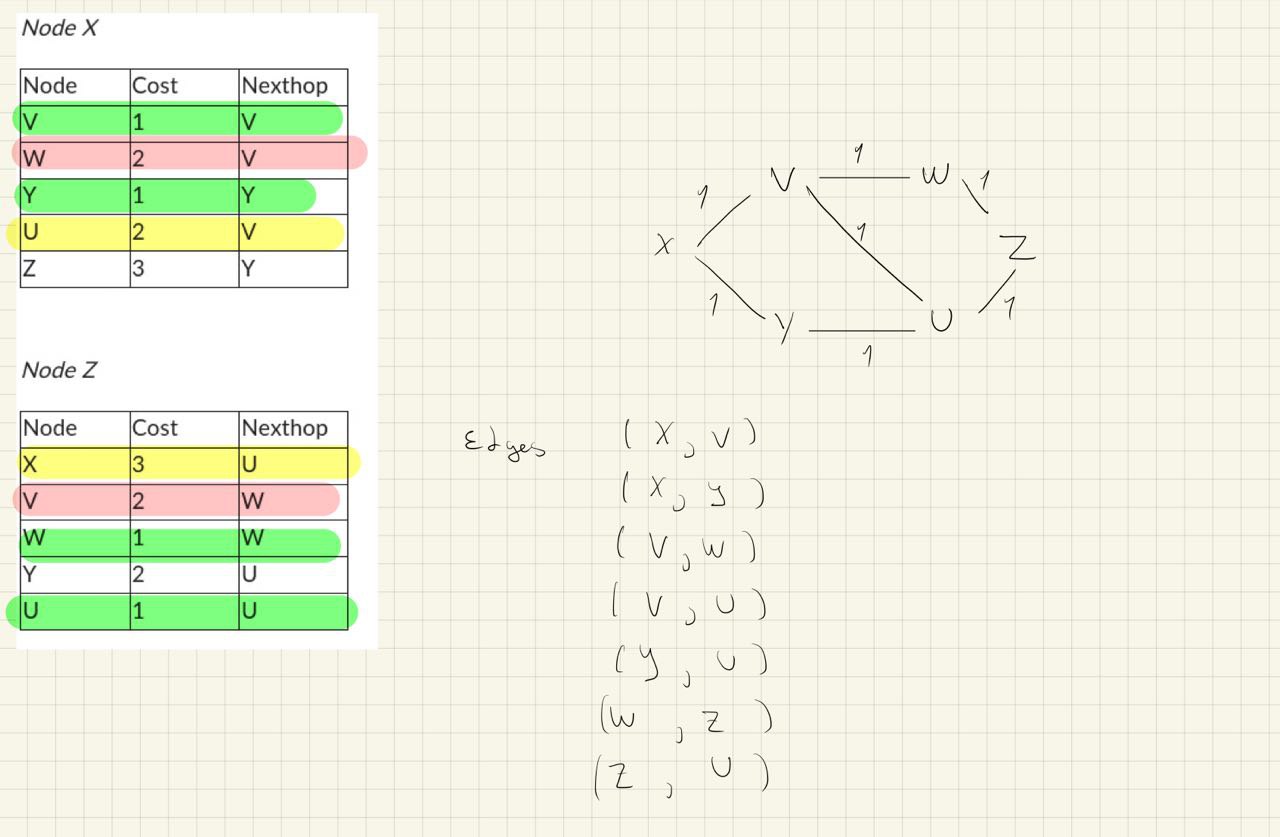 Node X
Node Cost Nexthop
V 1 V
W 2 V
Y 1 Y
U 2 V
Z 3 Y
Node Z
Node Cost Nexthop
X 3 U
V 2 W
W 1 W
Y 2 U
U 1 U
1
V W 1
1
1
X Z
1
Y U 1
1
Edges (X, V)
(X, y)
(V, W)
(V, U)
(y, U)
(W, Z)
(Z, U)